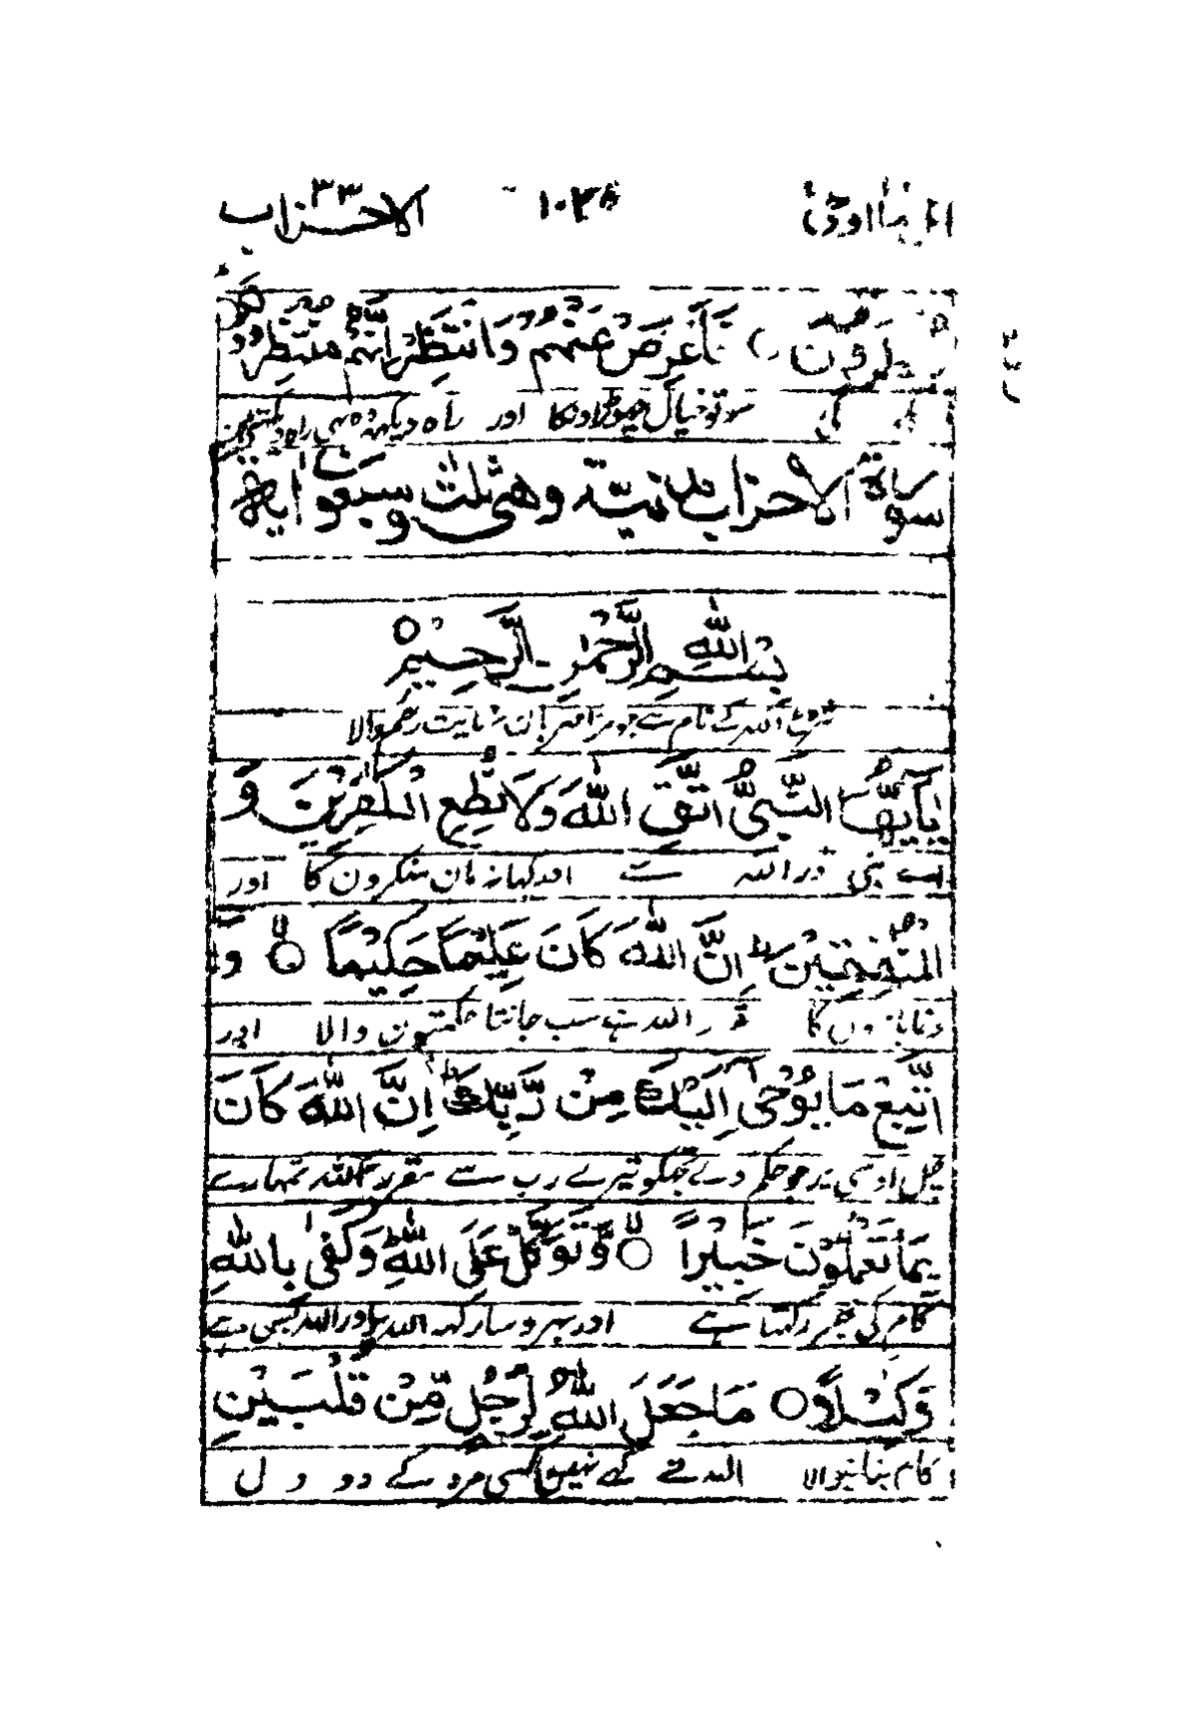 اتل ما اوحی ۱۰۲۸ الاحزاب ۳۳
يُنْظَرُوْنَ فَاَعْرِضْ عَنْهُمْ وَانْتَظِرْ اِنَّهُمْ مُّنْتَظِرُوْنَ
سو تو خیال چھوڑ اونکا اور راہ دیکھ وہ بھی راہ دیکھتے ہین
سورة الاحزاب مدنیة وهی ثلث وسبعون ایة
بِسْمِ اللّٰهِ الرَّحْمٰنِ الرَّحِيْمِ
اللہ کے نام سے جو بڑا مہربان نہایت رحم والا
يٰٓاَيُّهَا النَّبِيُّ اتَّقِ اللّٰهَ وَلَا تُطِعِ الْكٰفِرِيْنَ وَ
اے نبی ڈر اللہ سے اور کہا نہ مان منکرون کا اور
الْمُنٰفِقِيْنَ ؕ اِنَّ اللّٰهَ كَانَ عَلِيْمًا حَكِيْمًا ۙ وَّ
دغابازوں کا اللہ ہے سب جانتا حکمتون والا اور
اتَّبِعْ مَا يُوْحٰٓى اِلَيْكَ مِنْ رَّبِّكَ ؕ اِنَّ اللّٰهَ كَانَ
چل اوسی پر جو حکم دے تجھکو تیرے رب سے مقرر اللہ تمہارے
بِمَا تَعْمَلُوْنَ خَبِيْرًا ۙ وَّتَوَكَّلْ عَلَى اللّٰهِ ؕ وَكَفٰى بِاللّٰهِ
کام کی خبر رکھتا ہے اور بھروسا رکھ اللہ پر اور اللہ بس ہے
وَكِيْلًا مَا جَعَلَ اللّٰهُ لِرَجُلٍ مِّنْ قَلْبَيْنِ
کام بنانیوالا اللہ نے رکھے نہین کسی مرد کے دو دل